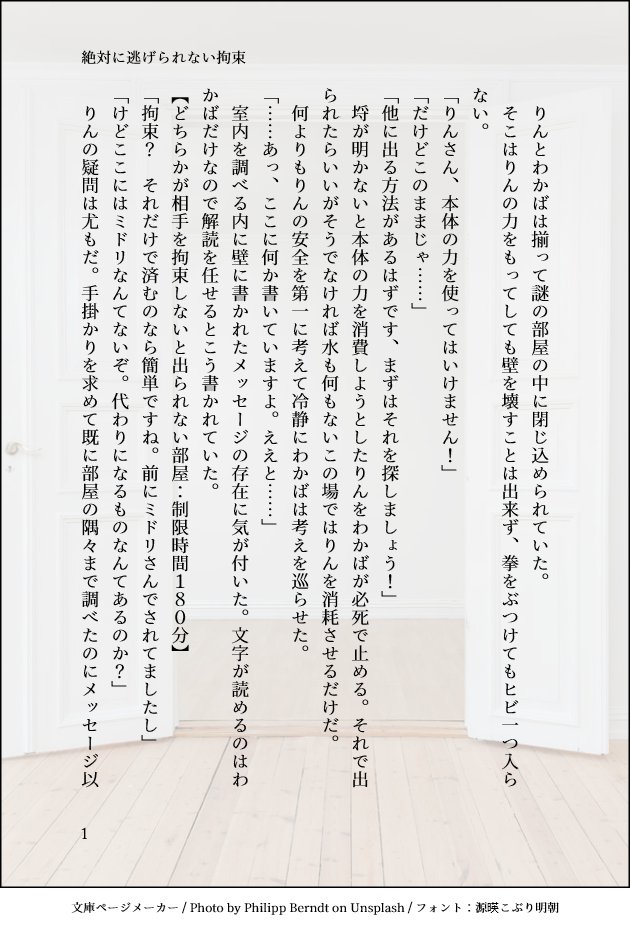 絶対に逃げられない拘束
りんとわかばは揃って謎の部屋の中に閉じ込められていた。
そこはりんの力をもってしても壁を壊すことは出来ず、拳をぶつけてもヒビ一つ入ら
ない。
「りんさん、本体の力を使ってはいけません！」
「だけどこのままじゃ……」
「他に出る方法があるはずです、まずはそれを探しましょう！」
埒が明かないと本体の力を消費しようとしたりんをわかばが必死で止める。それで出
られたらいいがそうでなければ水も何もないこの場ではりんを消耗させるだけだ。
何よりもりんの安全を第一に考えて冷静にわかばは考えを巡らせた。
「……あっ、ここに何か書いていますよ。ええと……」
室内を調べる内に壁に書かれたメッセージの存在に気が付いた。文字が読めるのはわ
かばだけなので解読を任せるとこう書かれていた。
【どちらかが相手を拘束しないと出られない部屋：制限時間１８０分】
「拘束？　それだけで済むのなら簡単ですね。前にミドリさんでされてましたし」
「けどここにはミドリなんてないぞ。代わりになるものなんてあるのか？」
りんの疑問は尤もだ。手掛かりを求めて既に部屋の隅々まで調べたのにメッセージ以
1
文庫ページメーカー / Photo by Philipp Berndt on Unsplash / フォント：源暎こぶり明朝